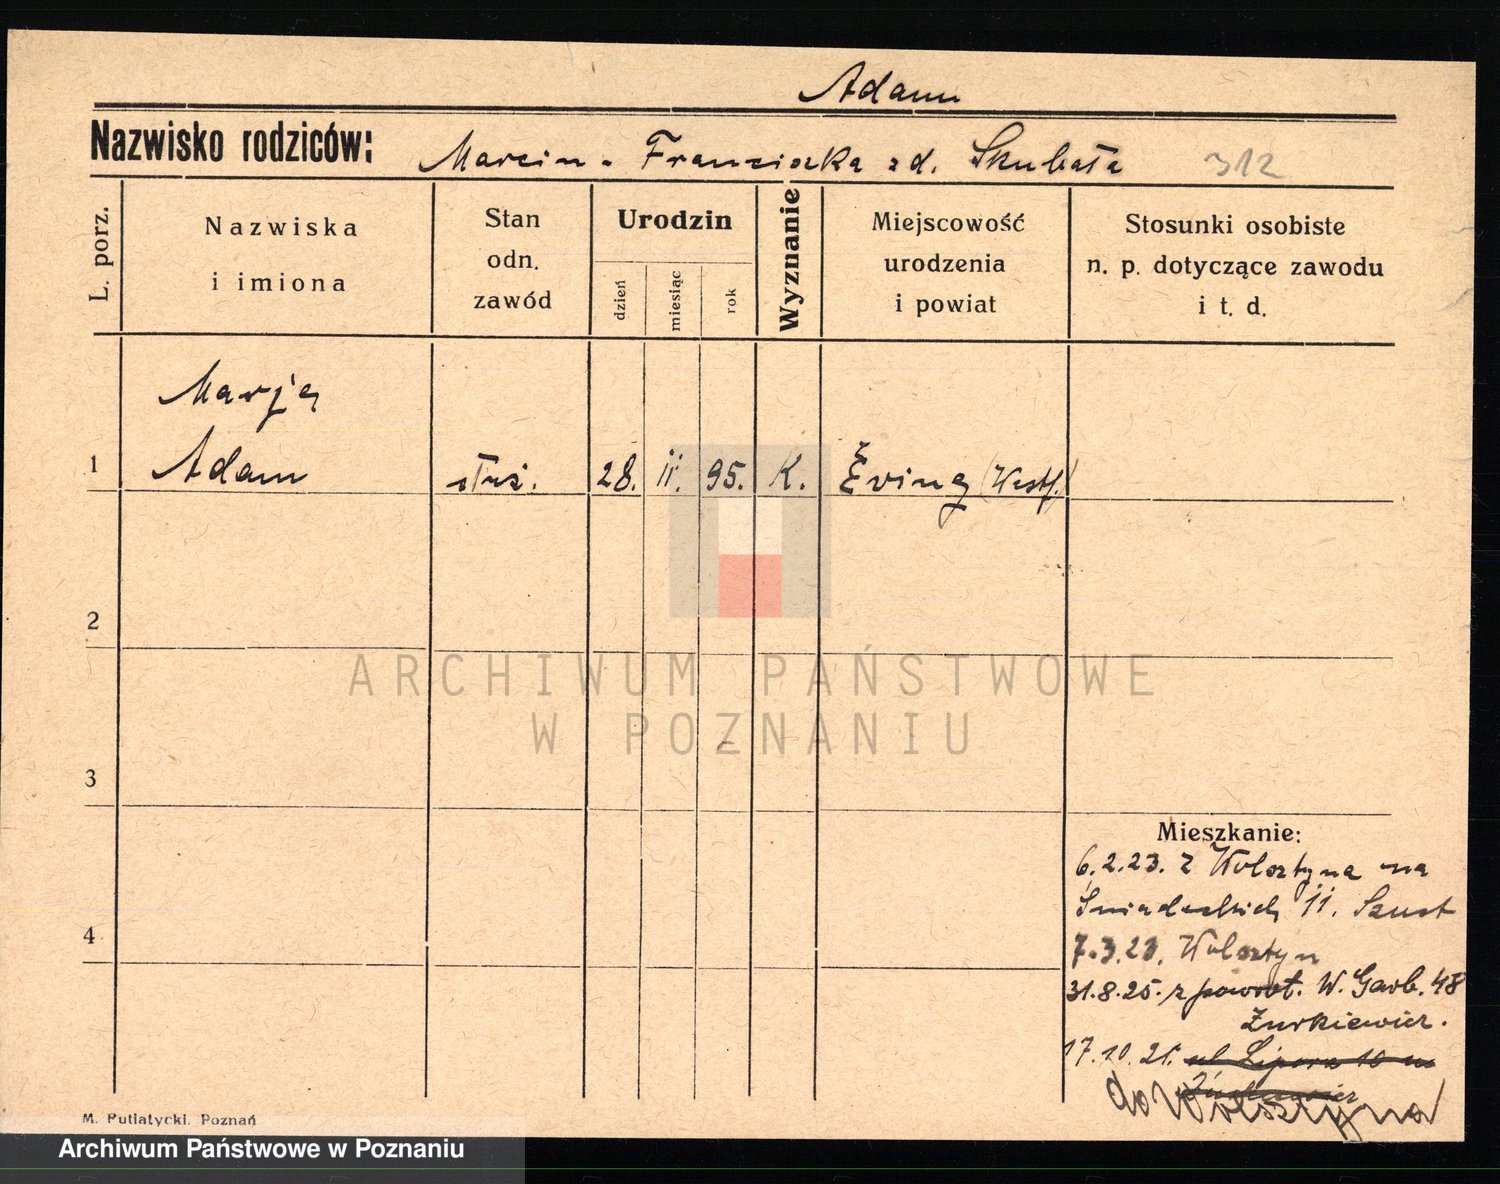 Adam
Nazwisko rodziców: Marcin - Franciszka zd. Skubała 312
L. porz.
Nazwiska i imiona
Stan odn. zawód
Urodzin
dzień
miesiąc
rok
Wyznanie
Miejscowość urodzenia i powiat
Stosunki osobiste n. p. dotyczące zawodu i t. d.
Marja
1 Adam służ. 28. 11. 95. K. Eving (Westf.)
2
3
4
Mieszkanie:
6.2.23. z Wolsztyna na
Śniadeckich 11. Szust
7.3.23. Wolsztyn
31.8.25. z powrot. W. Garb. 48
Żurkiewicz.
17.10.25. ul Lipowa 10 m
do Wolsztyna
M. Putiatycki. Poznań
ARCHIWUM PAŃSTWOWE
W POZNANIU
Archiwum Państwowe w Poznaniu